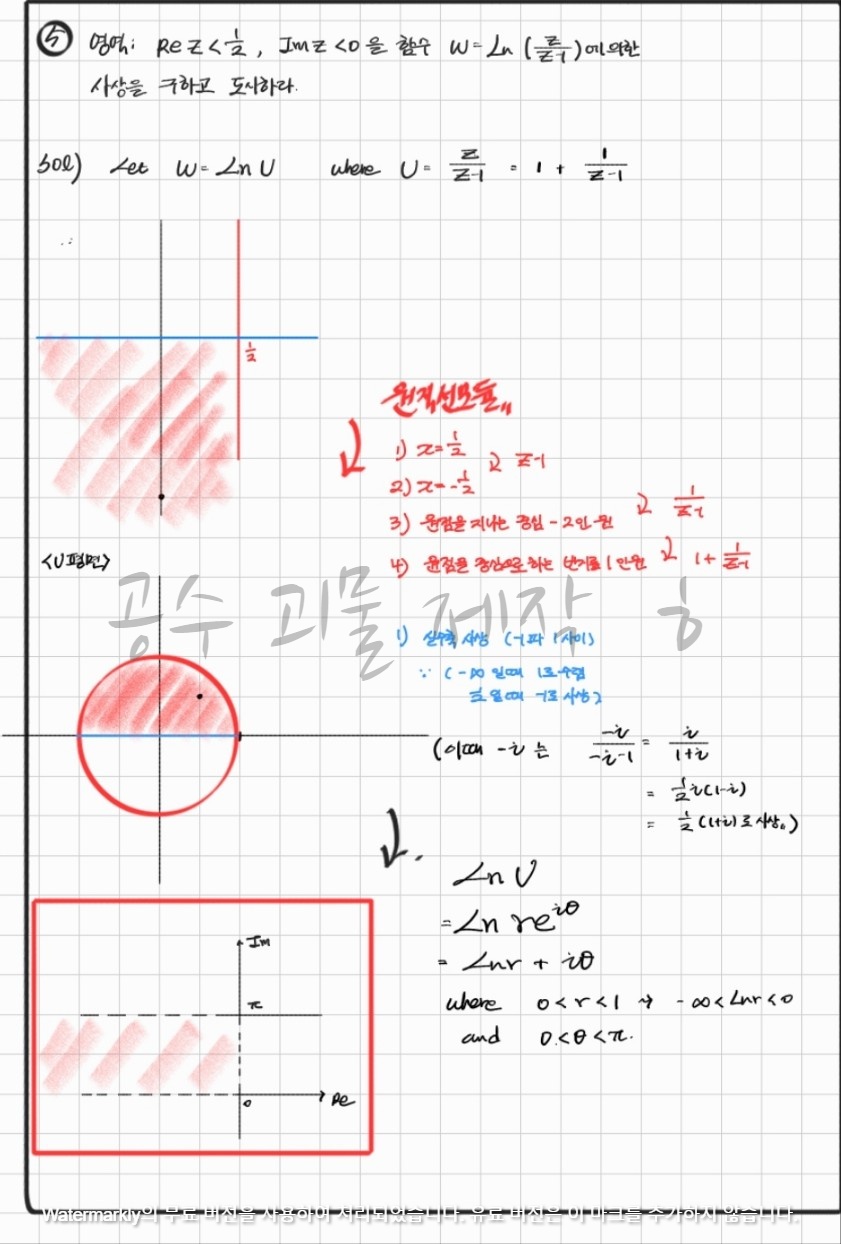 ⑤ 영역: Re z < 1/2 , Im z < 0 을 함수 W = Ln (z/(z-1)) 에 의한
사상을 구하고 도시하라.
sol) Let W = Ln U where U = z/(z-1) = 1 + 1/(z-1)
1/2
원직선모듈,,
1) x = 1/2
z-1
2) x = -1/2
3) 원점을 지나는 중심 -2인 원
1/(z-1)
4) 원점을 중심으로 하는 반지름 1인 원
1 + 1/(z-1)
<U평면>
공수 괴물 제작 ㅎ
1) 실수축 사상 (-1과 1 사이)
∵ (-∞ 일때 1로 수렴
1/2 일때 -1로 사상)
(이때 -i 는 -i/(-i-1) = i/(1+i)
= 1/2 i(1-i)
= 1/2 (1+i)로 사상。)
Ln U
= Ln re^{iθ}
= Lnr + iθ
where 0 < r < 1 → -∞ < Lnr < 0
and 0 < θ < π.
Im
π
0
Re
Watermarkly의 무료 버전을 사용하여 처리되었습니다. 유료 버전은 이 마크를 추가하지 않습니다.